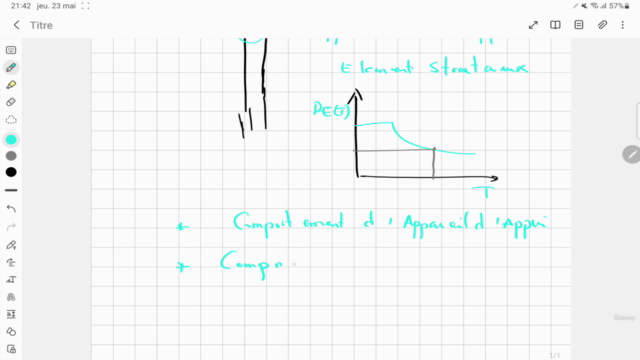 21:42 jeu. 23 mai
57%
Titre
Element Structaux
T
* Comportement d'Appareil d'Appui
* Compo
1/1